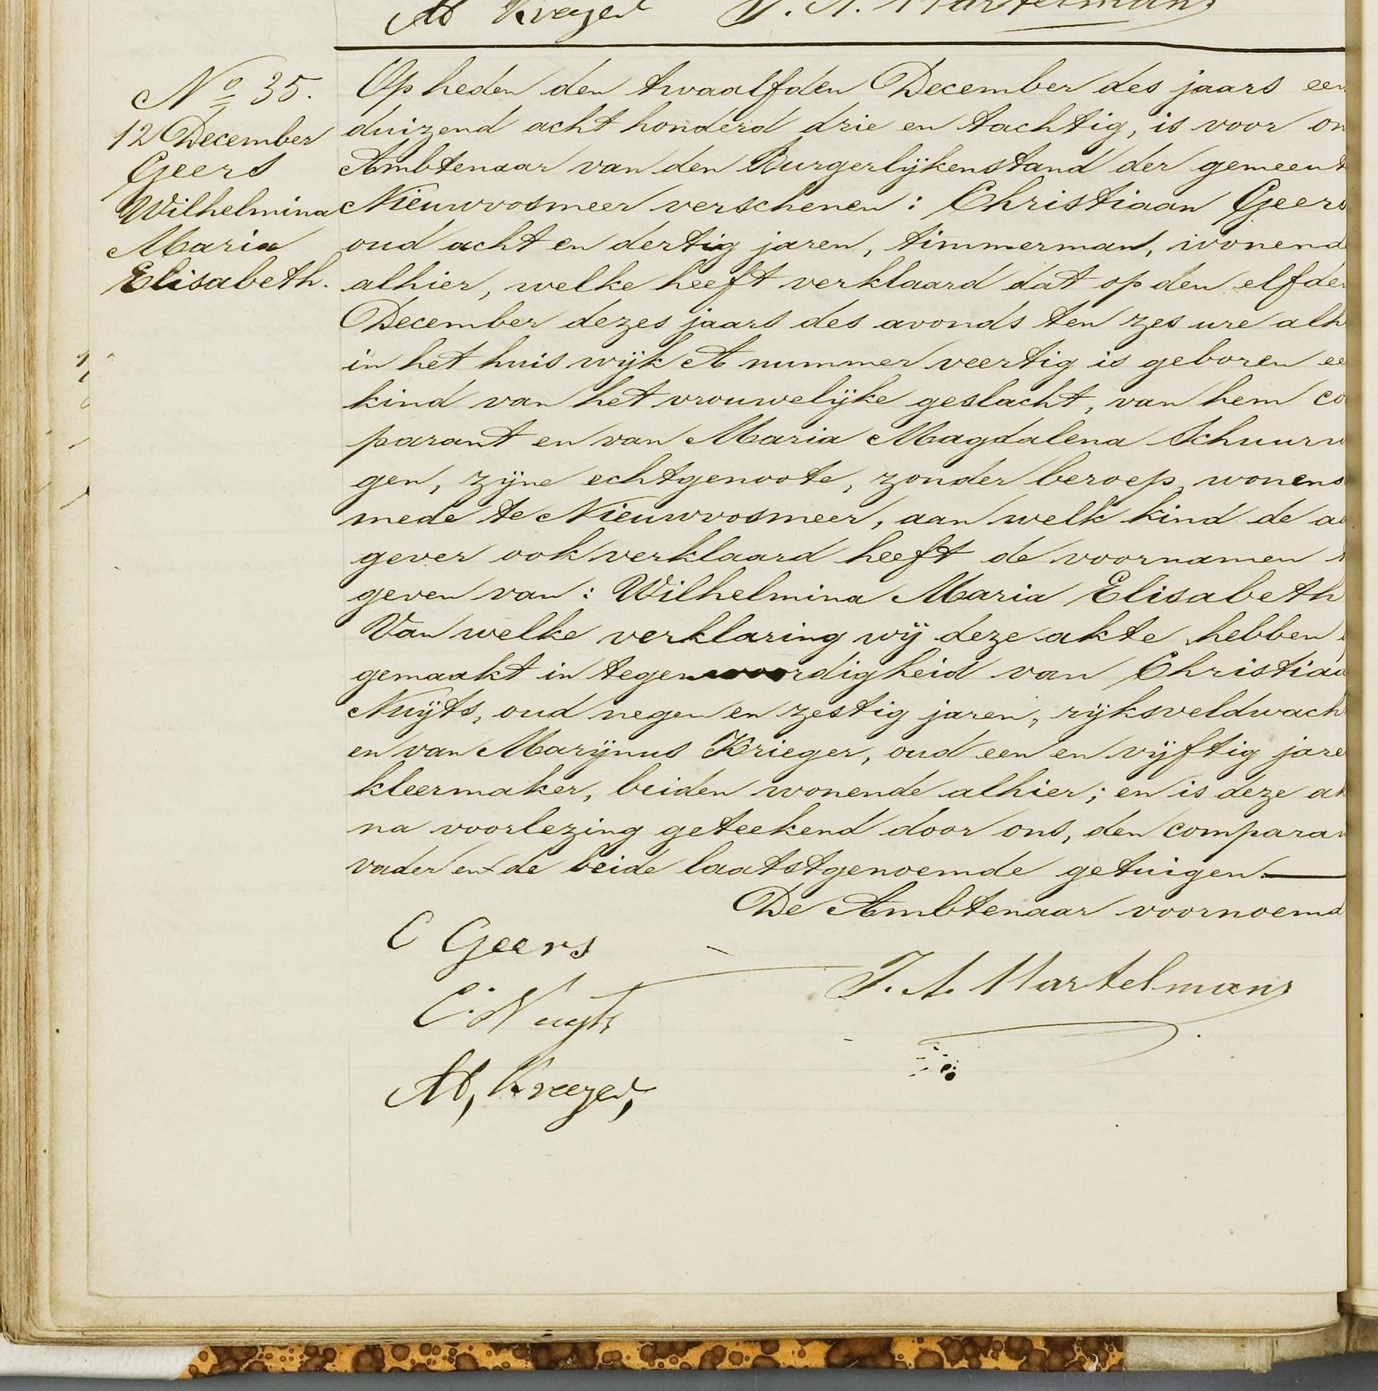 M Kreeger J. A. Martelmans
No 35.
12 December
Geers
Wilhelmina
Maria
Elisabeth.
Op heden den twaalfden December des jaars een
duizend acht honderd drie en tachtig, is voor on
Ambtenaar van den Burgerlijkenstand der gemeent
Nieuwvosmeer verschenen: Christiaan Geers
oud acht en dertig jaren, timmerman, wonend
alhier, welke heeft verklaard dat op den elfde
December dezes jaars des avonds ten zes ure alh
in het huis wijk A nummer veertig is geboren ee
kind van het vrouwelijke geslacht, van hem co
parant en van Maria Magdalena Schuurw
gen, zijne echtgenoote, zonder beroep, wonend
mede te Nieuwvosmeer, aan welk kind de aa
gever ook verklaard heeft de voornamen
geven van: Wilhelmina Maria Elisabeth
Van welke verklaring wij deze akte hebben
gemaakt in tegenwoordigheid van Christiaa
Nuijts, oud negen en zestig jaren, rijksveldwach
en van Marijnus Krieger, oud een en vijftig jare
kleermaker, beiden wonende alhier; en is deze ak
na voorlezing geteekend door ons, den comparan
vader en de beide laatstgenoemde getuigen.
De Ambtenaar voornoemd
C Geers
J. A. Martelmans
C. Nuyts
M, Kreeger,